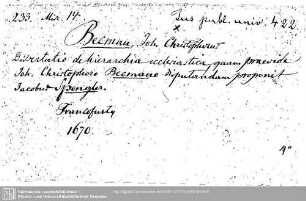 233. Misc. 14.
Jus publ. univ. 422.
x
Becman, Joh. Christophorus
Dissertatio de hierarchia ecclesiastica, quam praeside
Joh. Christophoro Becmano disputandam proponit
Jacobus Spengler.
Francofurti
1670.
4°
Sächsische Landesbibliothek -
Staats- und Universitätsbibliothek Dresden